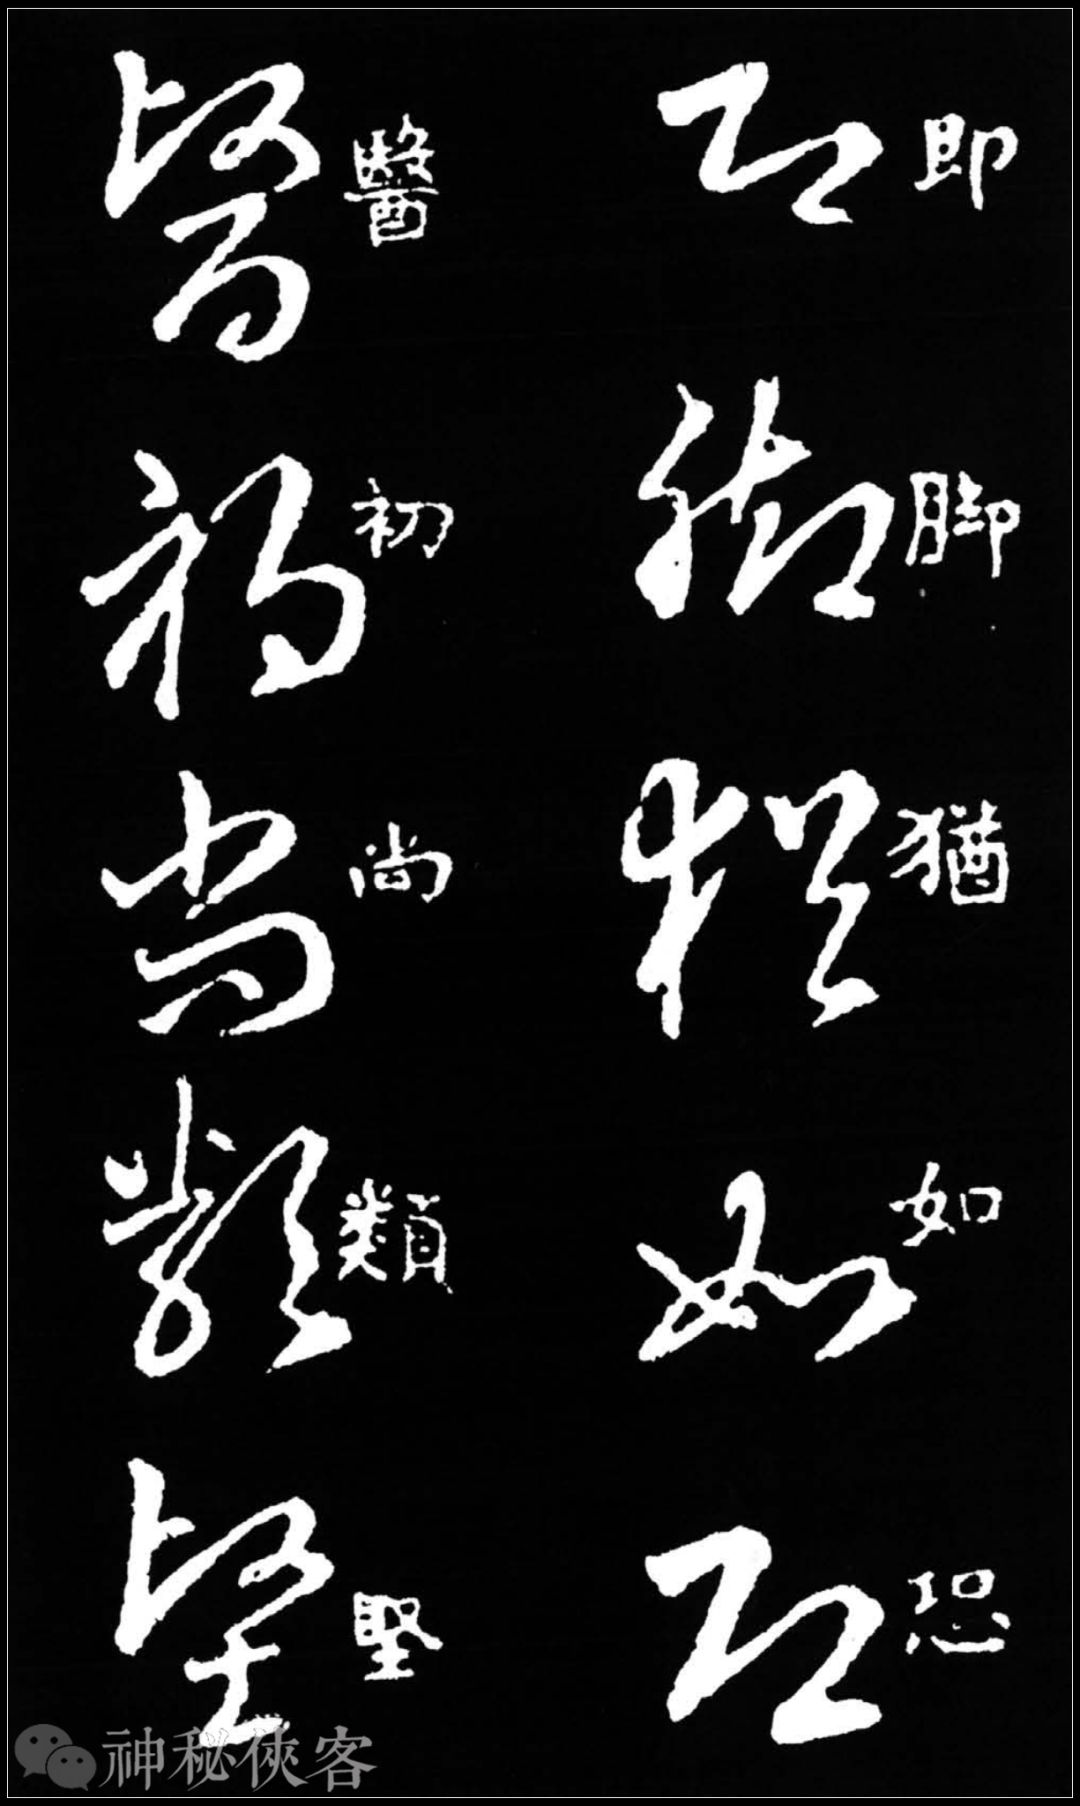 即脚猶如恐
醫初尚類堅
神秘俠客